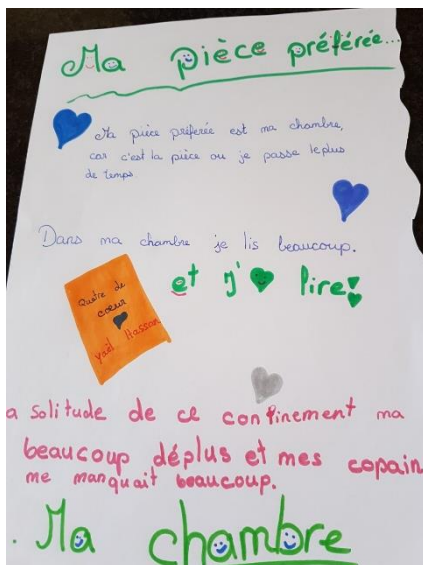 Ma pièce préférée...
Ma pièce préferée est ma chambre,
car c'est la pièce ou je passe le plus
de temps.
Dans ma chambre je lis beaucoup.
et j'♥ lire!
Quatre de
coeur
Yaël Hassan
a solitude de ce confinement ma
beaucoup déplus et mes copain
me manquait beaucoup.
. Ma chambre